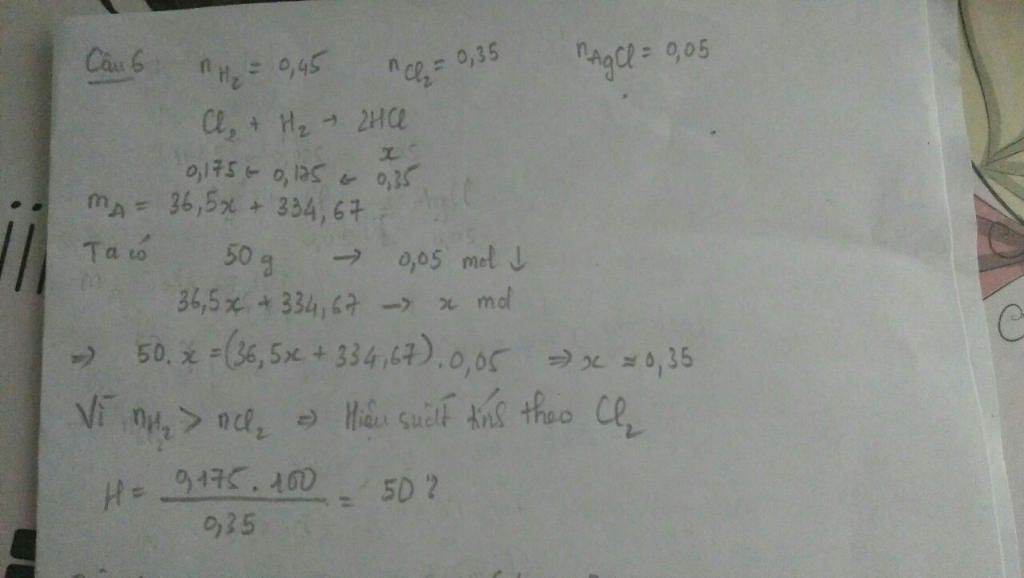 Câu 6 nH₂ = 0,45 nCl₂ = 0,35 nAgCl = 0,05
Cl₂ + H₂ → 2HCl
x
0,175 ← 0,175 ← 0,35
mA = 36,5x + 334,67
Ta có 50g → 0,05 mol ↓
36,5x + 334,67 → x mol
⇒ 50.x = (36,5x + 334,67).0,05 ⇒ x ≈ 0,35
Vì nH₂ > nCl₂ ⇒ Hiệu suất tính theo Cl₂
H = 0,175.100 / 0,35 = 50%